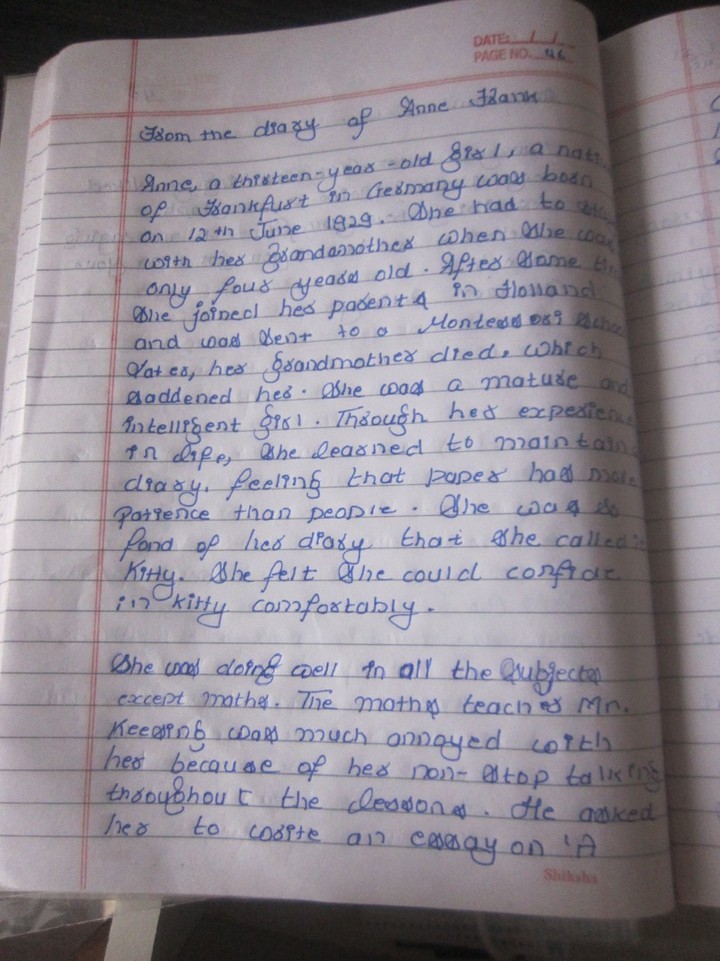 DATE: / /
PAGE NO. 46
From the diary of Anne Frank
Anne, a thirteen-year-old girl, a
of Frankfurt in Germany was born
on 12th June 1929. She had to
with her grandamother when she was
only four years old. After some
She joined her parents in Holland
and was sent to a Montessori
Later, her grandmother died, which
saddened her. She was a mature and
intelligent girl. Through her
in life, she learned to maintain
diary, feeling that paper had more
patience than people. She was so
fond of her diary that she called
Kitty. She felt she could confide
in kitty comfortably.
She was doing well in all the subjects
except maths. The maths teacher Mr.
Keesing was much annoyed with
her because of her non-stop talking
throughout the lessons. He asked
her to write an essay on 'A
Shiksha